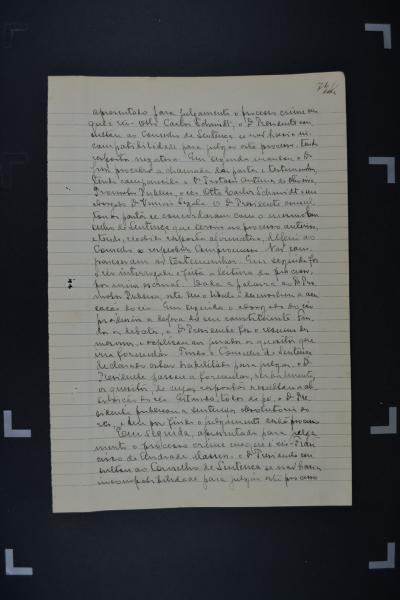 apresentado para julgamento o processo crime em
que é réo Otto Carlos Schmidt, o Dr. Presidente con
sultou ao Conselho de Sentença se não havia in
compatibilidade para julgar este processo, tendo
resposta negativa. Em seguida mandou o Dr.
Juiz proceder a chamada das partes e testemunhas,
tendo comparecido o Dr.
Promotor Publico, o réo Otto Carlos Schmidt e seu
advogado Dr. O Dr. Presidente consul
tou as partes se concordaram com o mesmo Con
selho de Sentença que serviu no processo anterior,
e tendo recebido resposta affirmativa, deferio ao
Conselho o respectivo Compromisso. Não com
pareceram as testemunhas. Em seguida foi
o réo interrogado e feita a leitura do processo,
por mim escrivão. Dada a palavra ao Dr. Pro
motor Publico, este leu o libello e desenvolveu a accu
sação do réo. Em seguida o advogado do réo
produziu a defesa do seu constituinte. Fin
dos os debates, o Dr. Presidente fez o resumo dos
mesmos, e explicou aos jurados os quesitos que
iria formular. Tendo o Conselho de Sentença
declarado estar habilitado para julgar, o Dr.
Presidente passou a formular, 
os quesitos, de cujas respostas resultou a ab
solvição do réo. Estando todos de pé, o Dr. Pre
sidente publicou a sentença absolutoria do
réo, e deu por findo o julgamento deste processo.
Em seguida, apresentado para julga
mento o processo crime em que é réo Fran
cisco de Andrade, o Dr. Presidente con
sultou ao Conselho de Sentença se não havia
incompatibilidade para julgar este processo